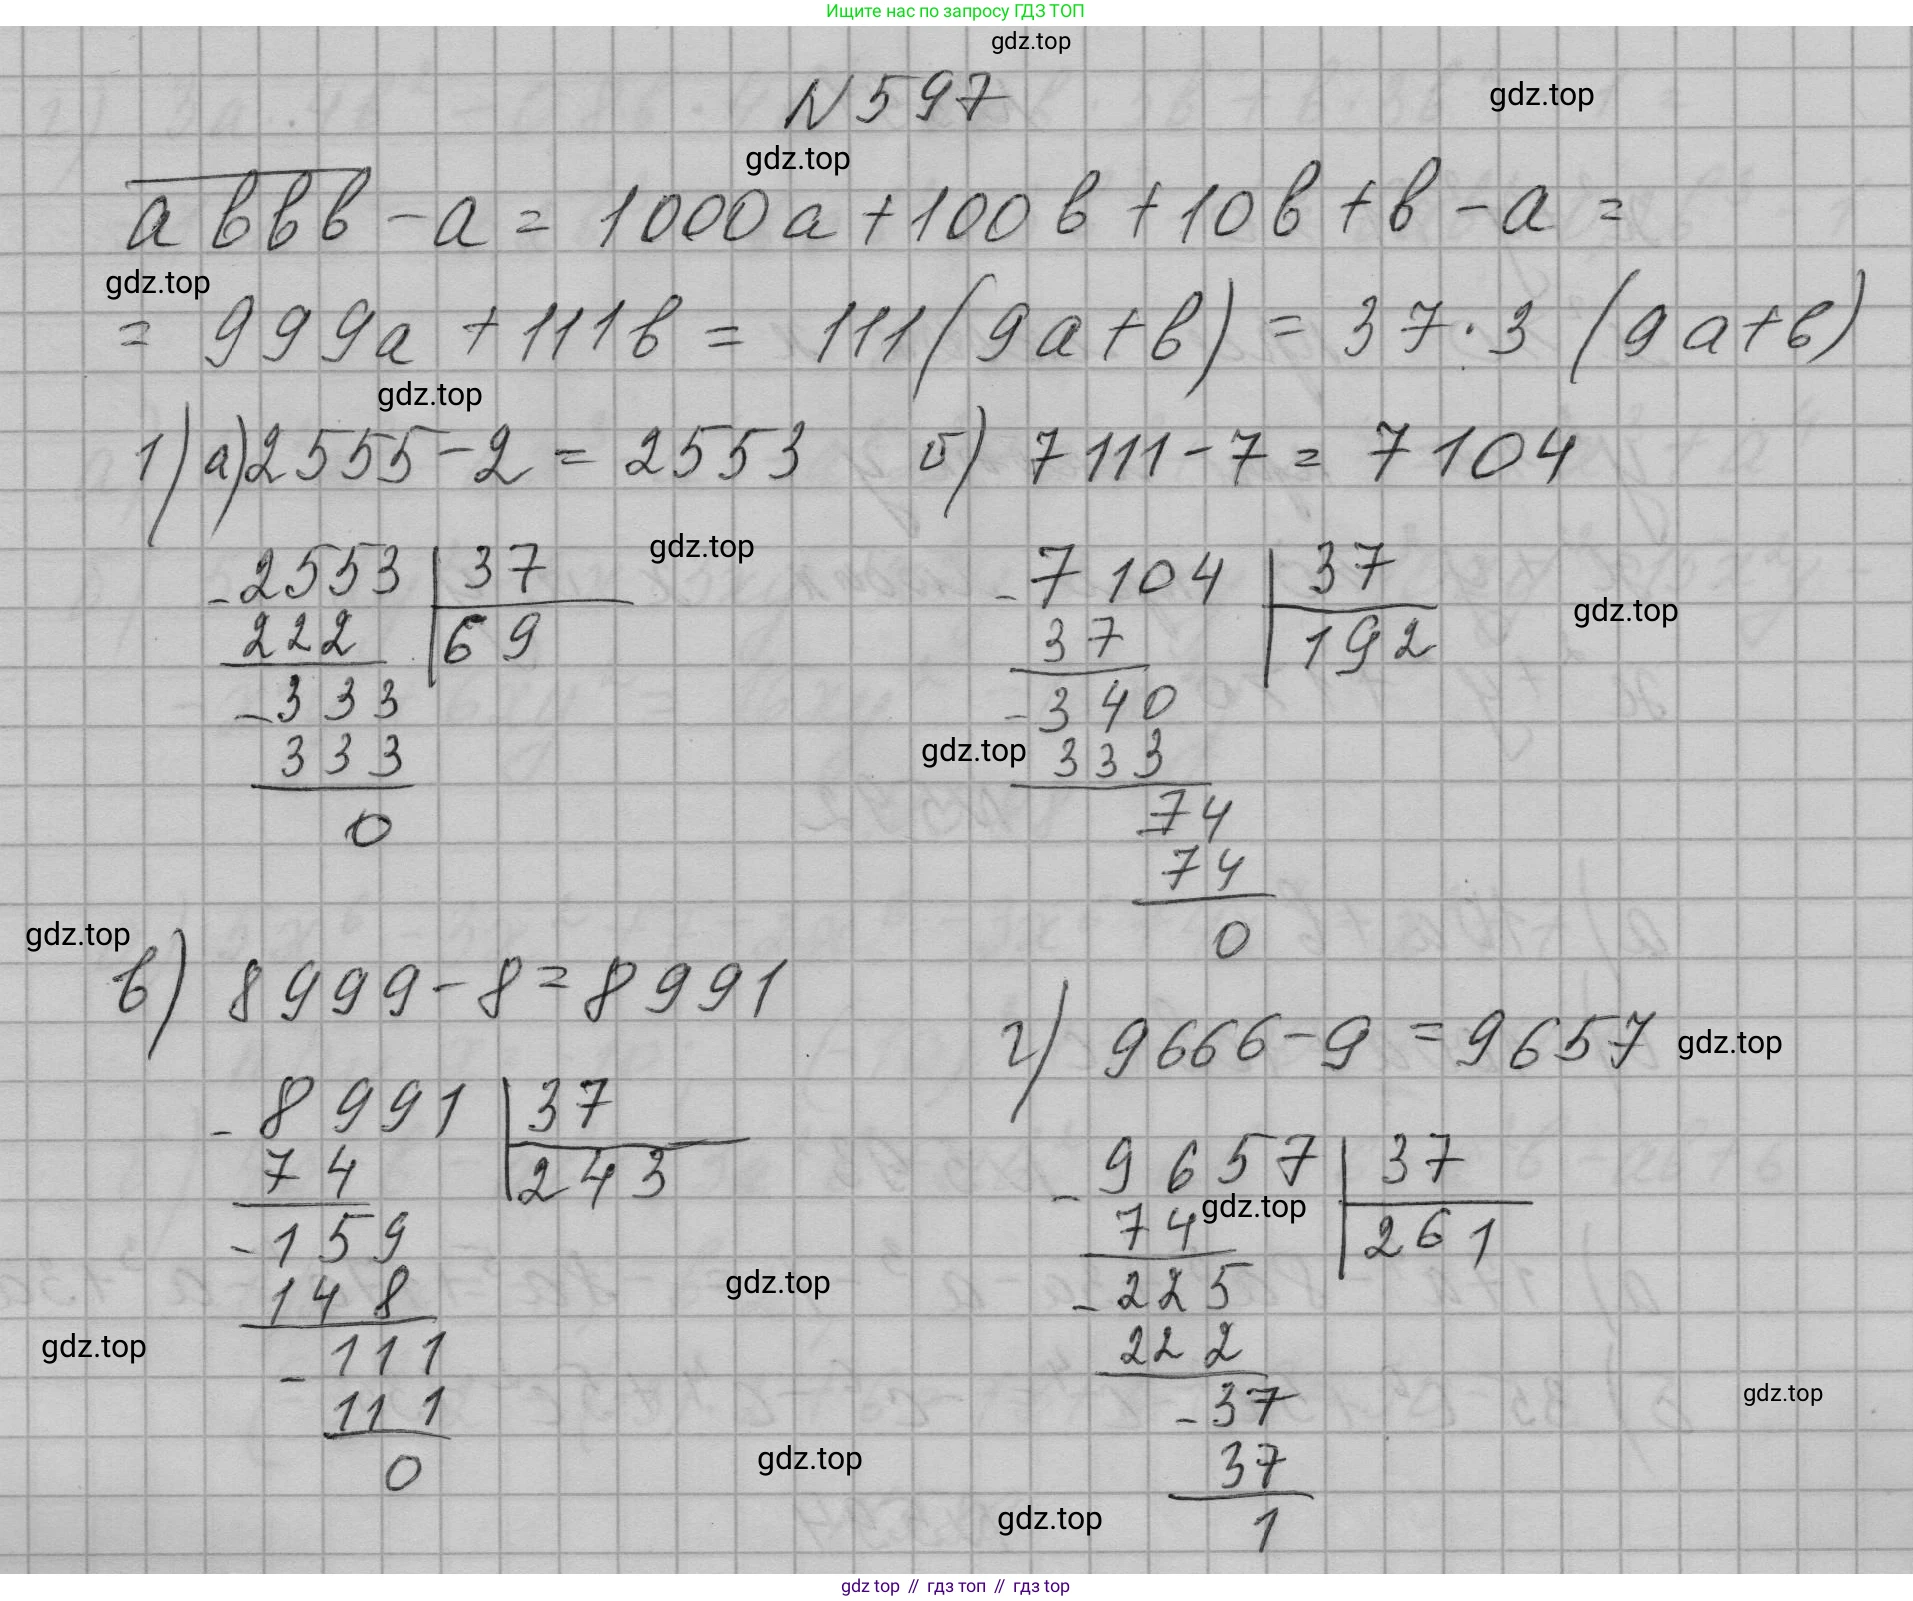 Ищите нас по запросу ГДЗ ТОП
gdz.top
N 597
gdz.top
gdz.top
abbb - a = 1000a + 100b + 10b + b - a =
gdz.top
= 999a + 111b = 111(9a+b) = 37·3 (9a+b)
gdz.top
1) а) 2555 - 2 = 2553
2553 | 37
222 | 69
- 333
333
0
gdz.top
б) 7111 - 7 = 7104
- 7104 | 37
37 | 192
- 340
333
74
74
0
gdz.top
gdz.top
gdz.top
в) 8999 - 8 = 8991
- 8991 | 37
74 | 243
- 159
148
- 111
111
0
gdz.top
gdz.top
gdz.top
г) 9666 - 9 = 9657
gdz.top
- 9657 | 37
74 | 261
gdz.top
- 225
222
- 37
37
1
gdz.top
gdz.top
gdz top // гдз топ // гдз top